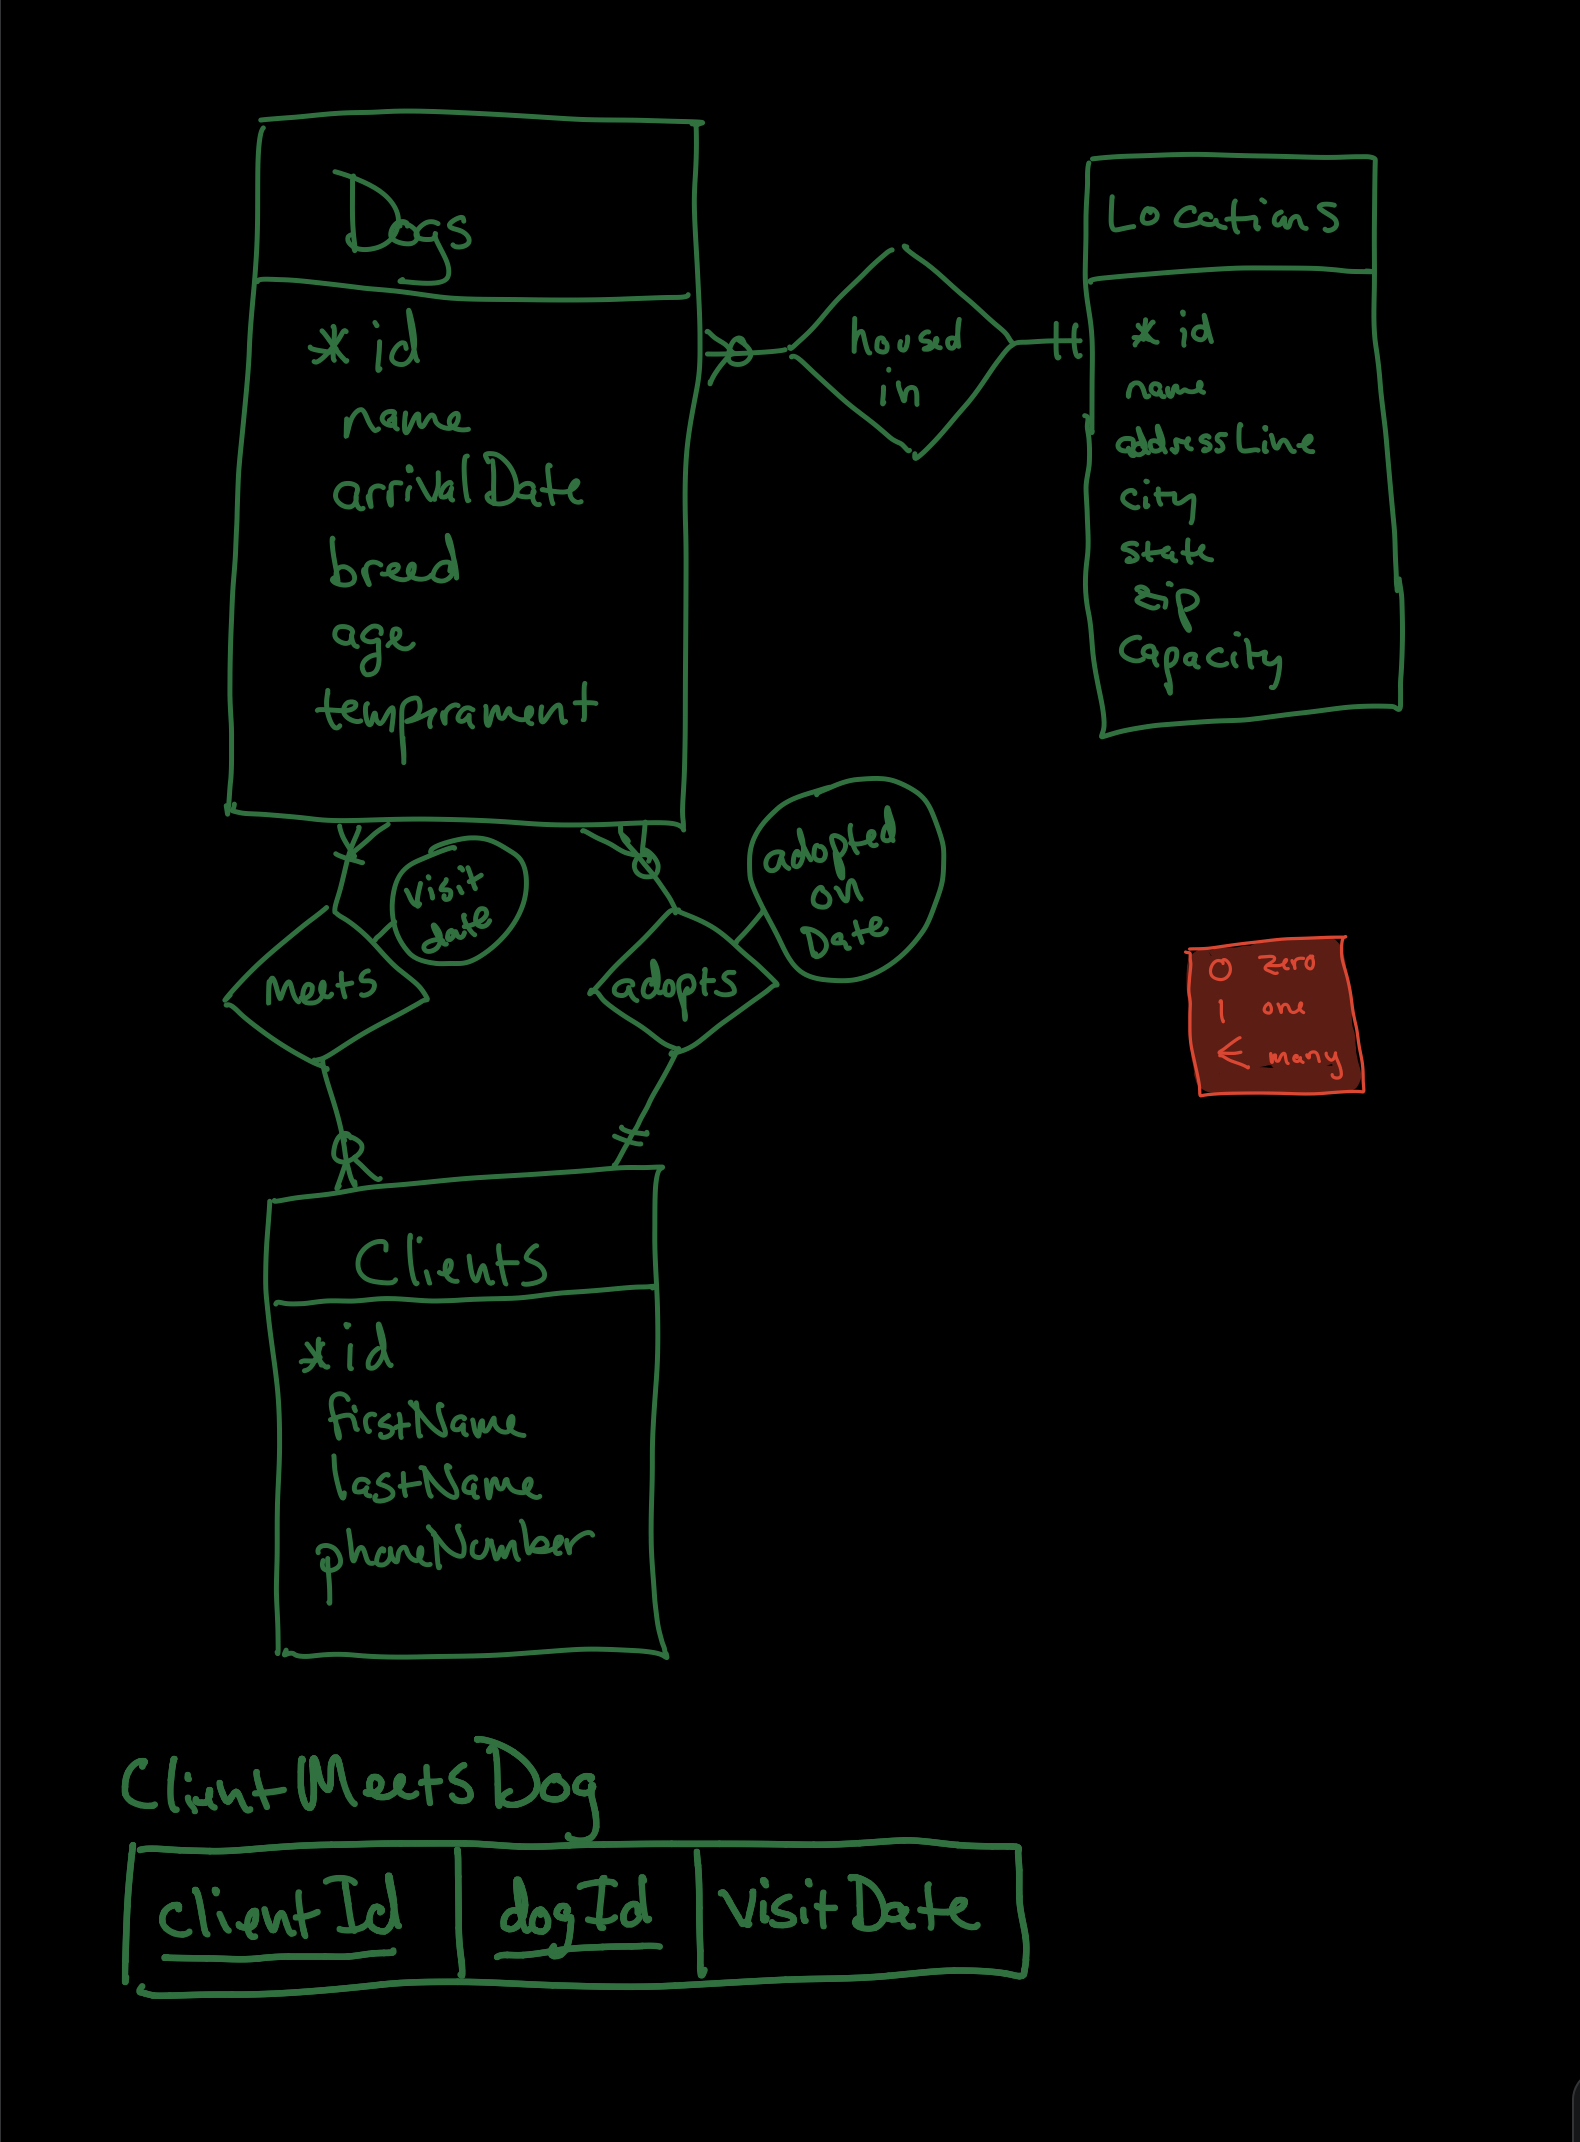 Dogs
* id
name
arrivalDate
breed
age
temprament
housed
in
Locations
* id
name
addressLine
city
state
zip
Capacity
visit
date
Meets
adopted
on
Date
adopts
O zero
| one
< many
Clients
* id
firstName
lastName
phoneNumber
ClientMeetsDog
clientId
dogId
VisitDate